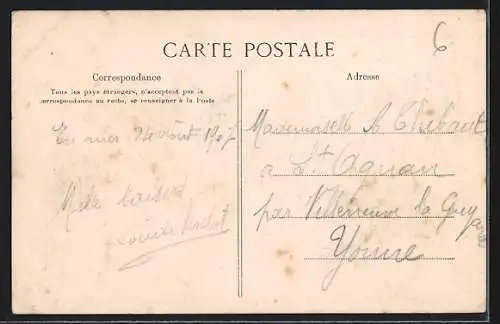 6
CARTE POSTALE
Correspondance
Tous les pays étrangers, n'acceptent pas la
correspondance au recto, se renseigner à la Poste
24 Août 1907
Mille baisers
Louise
Adresse
Mademoiselle A Thibault
a St Agnan
par Villeneuve la Guyard
Yonne